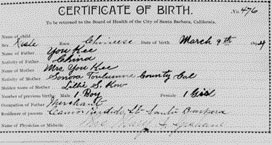 No 476
CERTIFICATE OF BIRTH.
To be returned to the Board of Health of the City of Santa Barbara, California.
Name of child
Sex Male Race Chinese Date of birth March 9th
Name of Father You Kee
Nativity of Father China
Name of Mother Mrs You Kee
Nativity of Mother Sonora Tuolumne County Cal
Maiden name of Mother Lillie S. Kow
Number of previous births, Male 1 Boy Female 1 Girl
Occupation of Father Merchant
Residence of parents Canon Perdido St Santa Barbara
Name of Physician or Midwife Mrs